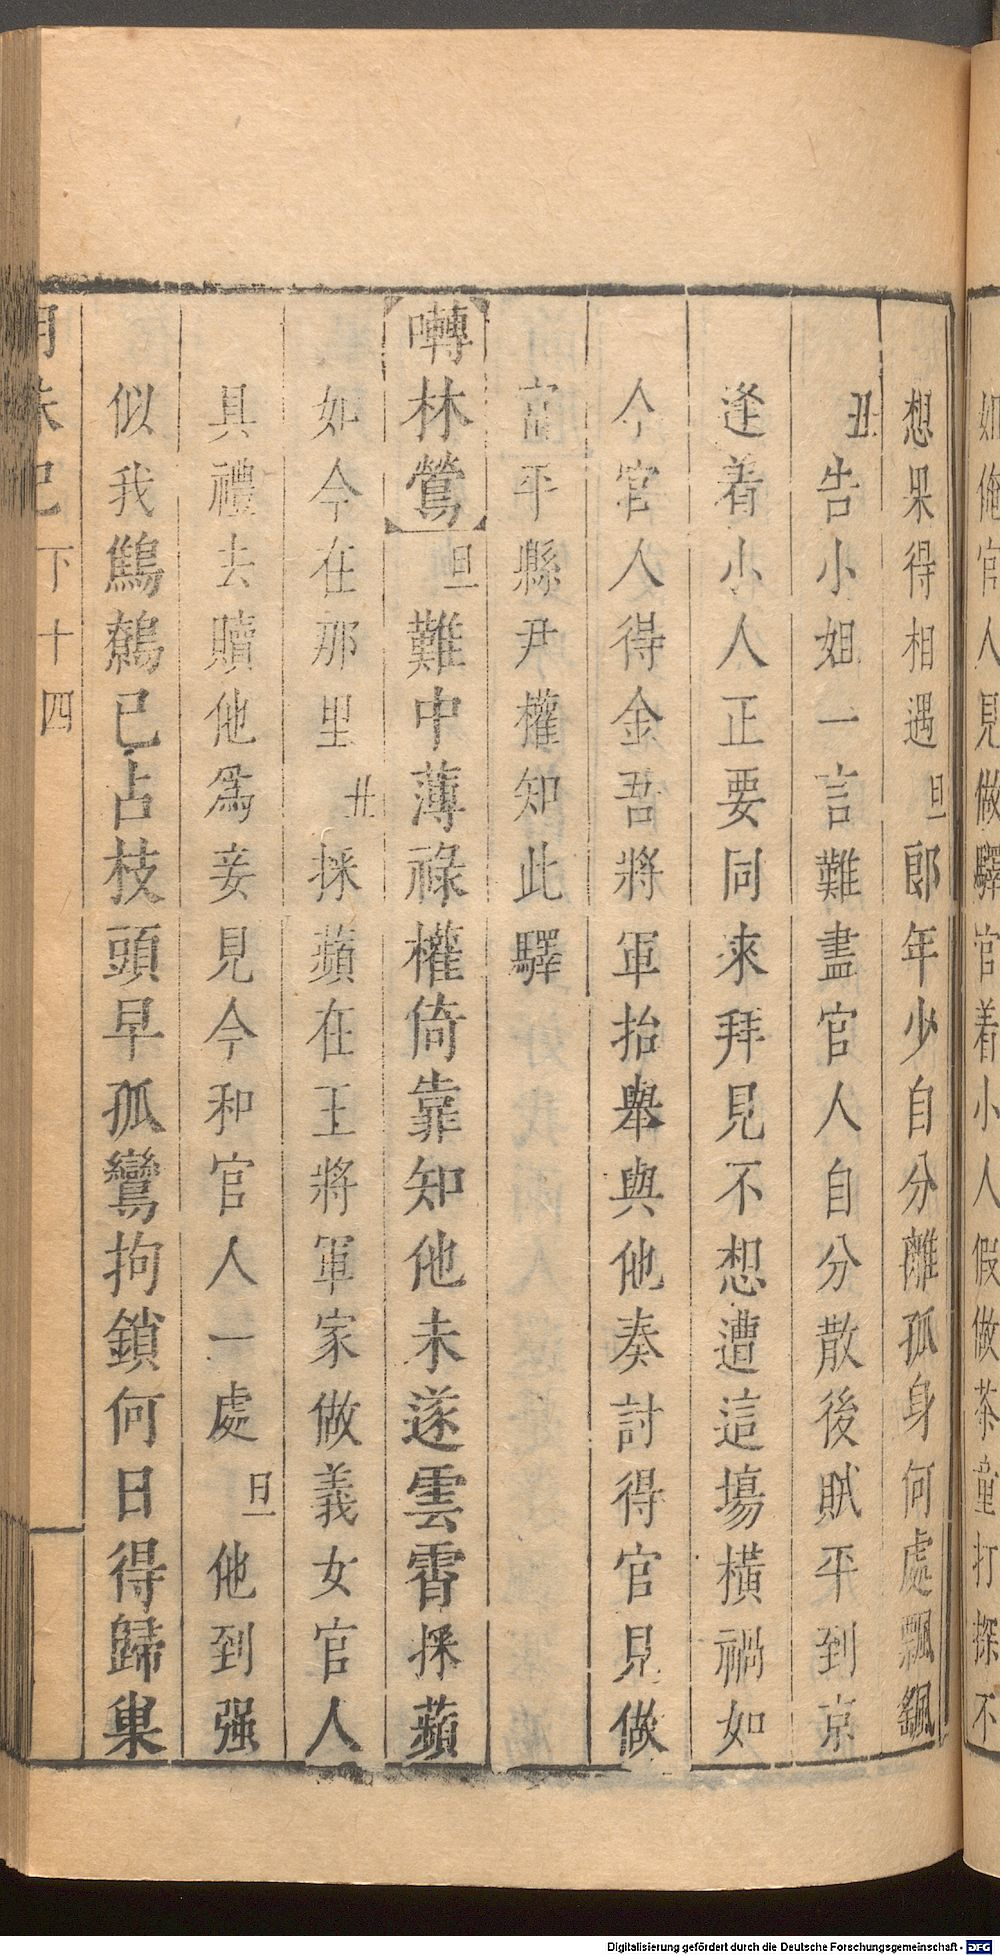 如俺官人見做驛官着小人假做茶童打探不
想果得相遇旦郎年少自分離孤身何處飄颻
丑告小姐一言難盡官人自分散後賊平到京
逢着小人正要同來拜見不想遭這場橫禍如
今官人得金吾將軍抬舉與他奏討得官見做
富平縣尹權知此驛
囀林鶯旦難中薄祿權倚靠知他未遂雲霄採蘋
如今在那里丑採蘋在王將軍家做義女官人
具禮去贖他為妾見今和官人一處旦他到强
似我鷦鷯已占枝頭早孤鸞拘鎖何日得歸巢
明珠記 下 十四
Digitalisierung gefördert durch die Deutsche Forschungsgemeinschaft - DFG